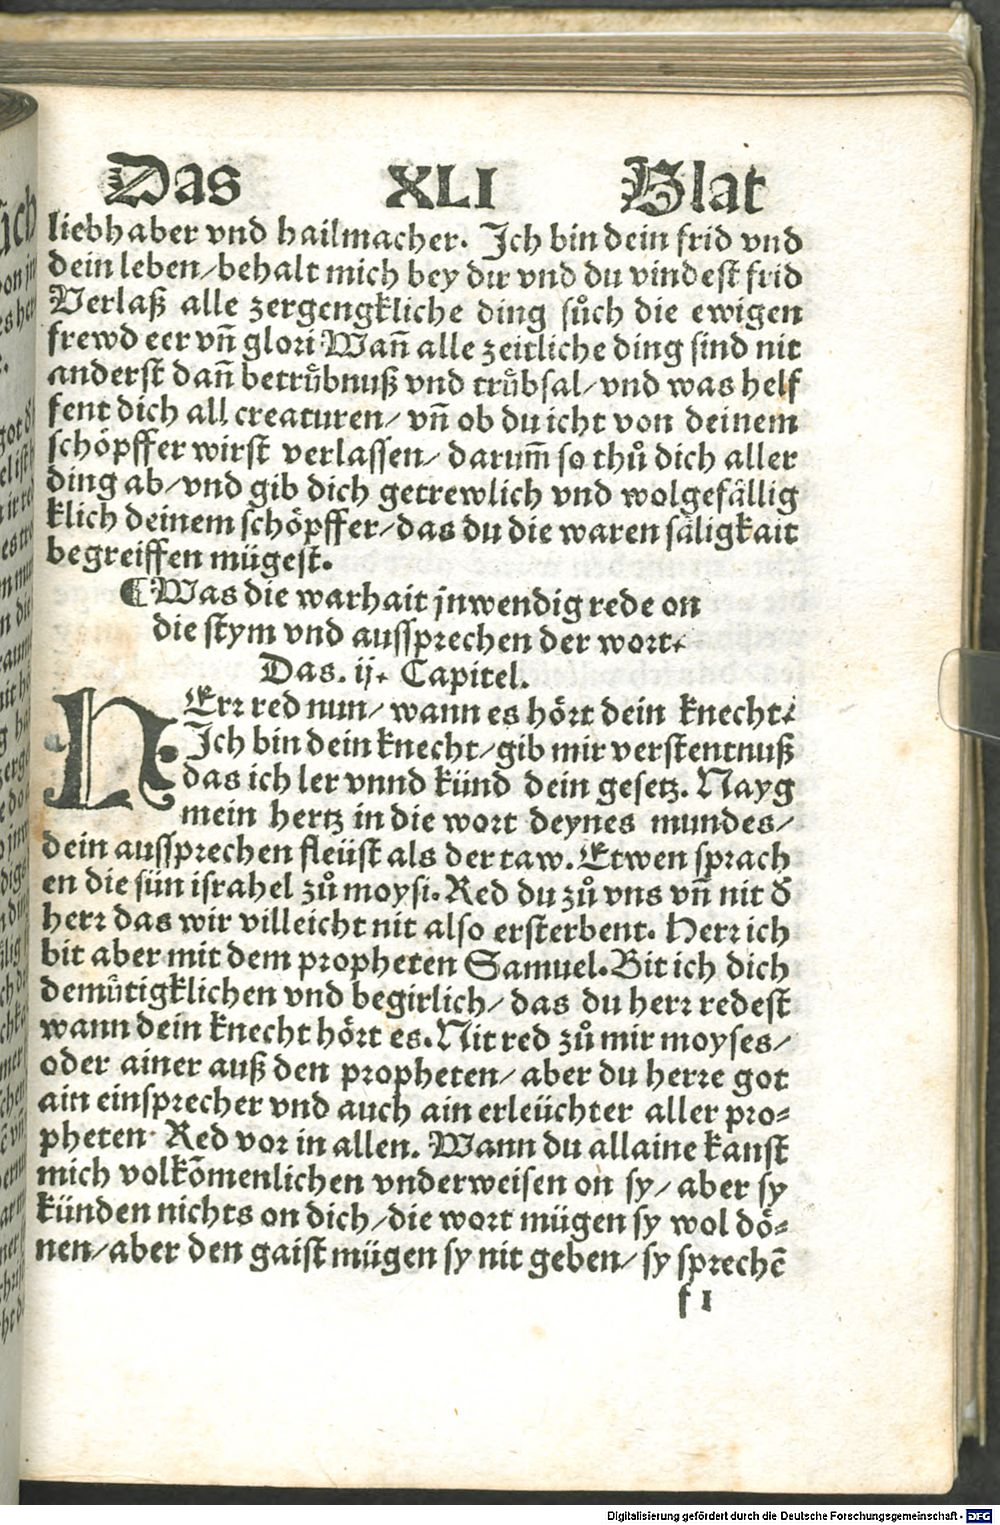 Das XLI Blat
liebhaber vnd hailmacher. Jch bin dein frid vnd
dein leben/behalt mich bey dir vnd du vindest frid
Verlaß alle zergengkliche ding sůch die ewigen
frewd eer vñ glori Wañ alle zeitliche ding sind nit
anderst dañ betrůbnuß vnd trůbsal/vnd was helf
fent dich all creaturen/ vñ ob du icht von deinem
schöpffer wirst verlassen/ darum̃ so thů dich aller
ding ab/vnd gib dich getrewlich vnd wolgefällig
klich deinem schöpffer/das du die waren säligkait
begreiffen mügest.
¶Was die warhait jnwendig rede on
die stym vnd aussprechen der wort.
Das. ij. Capitel.
HErr red nun/ wann es hört dein knecht.
Jch bin dein knecht/gib mir verstentnuß
das ich ler vnnd künd dein gesetz. Nayg
mein hertz in die wort deynes mundes/
dein aussprechen fleüst als der taw. Etwen sprach
en die sün israhel zů moysi. Red du zů vns vñ nit d̕
herr das wir villeicht nit also ersterbent. Herr ich
bit aber mit dem propheten Samuel. Bit ich dich
demůtigklichen vnd begirlich/ das du herr redest
wann dein knecht hört es. Nit red zů mir moyses/
oder ainer auß den propheten/ aber du herre got
ain einsprecher vnd auch ain erleüchter aller pro-
pheten· Red vor in allen. Wann du allaine kanst
mich volkõmenlichen vnderweisen on sy/ aber sy
künden nichts on dich/die wort mügen sy wol dö-
nen/aber den gaist mügen sy nit geben/ sy sprechē
f 1
Digitalisierung gefördert durch die Deutsche Forschungsgemeinschaft - DFG